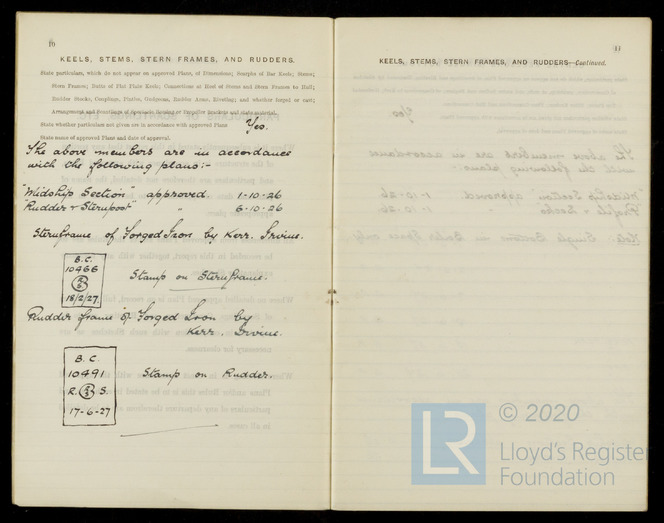 10
KEELS, STEMS, STERN FRAMES, AND RUDDERS.
State particulars, which do not appear on approved Plans, of Dimensions; Scarphs of Bar Keels; Stems;
Stern Frames; Butts of Flat Plate Keels; Connections of Keel or Stems and Stern Frames to Hull;
Rudder Stocks, Couplings, Pintles, Gudgeons, Rudder Arms, Rivetting; and whether forged or cast;
Arrangement and Scantlings of Spectacle Bossing or Propeller Brackets and state material.
State whether particulars not given are in accordance with approved Plans Yes.
State name of approved Plans and date of approval.
The above members are in accordance
with the following plans:-
"Midship Section" approved 1-10-26
"Rudder & Sternpost" " 6-10-26
Sternframe of Forged Iron by Kerr. Irvine.
B.C.
10466
18/2/27.
Stamp on Sternframe.
Rudder frame of Forged Iron by
Kerr. Irvine.
B.C.
10491
R. S.
17-6-27
Stamp on Rudder.
11
KEELS, STEMS, STERN FRAMES, AND RUDDERS—Continued.
LR
© 2020
Lloyd's Register
Foundation